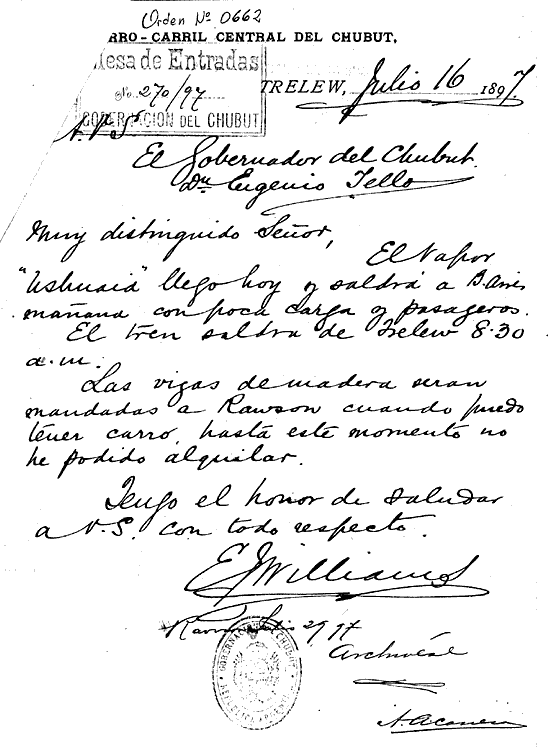 Orden Nº 0662
RRO-CARRIL CENTRAL DEL CHUBUT,
Mesa de Entradas
No. 270/97
GOBERNACION DEL CHUBUT
TRELEW, Julio 16 1897.
A. V. S.
El Gobernador del Chubut.
Dn Eugenio Tello
Muy distinguido Señor,
El Vapor
"Ushuaia" llego hoy y saldrá a B. Aires
mañana con poca carga y pasageros.
El tren saldra de Trelew 8.30
a.m.
Las vigas de madera seran
mandadas a Rawson cuando puedo
tener carro, hasta este momento no
he podido alquilar.
Tengo el honor de saludar
a V.S. con todo respecto.
E J Williams
29 97
GOBERNACION DEL CHUBUT
REPUBLICA ARGENTINA